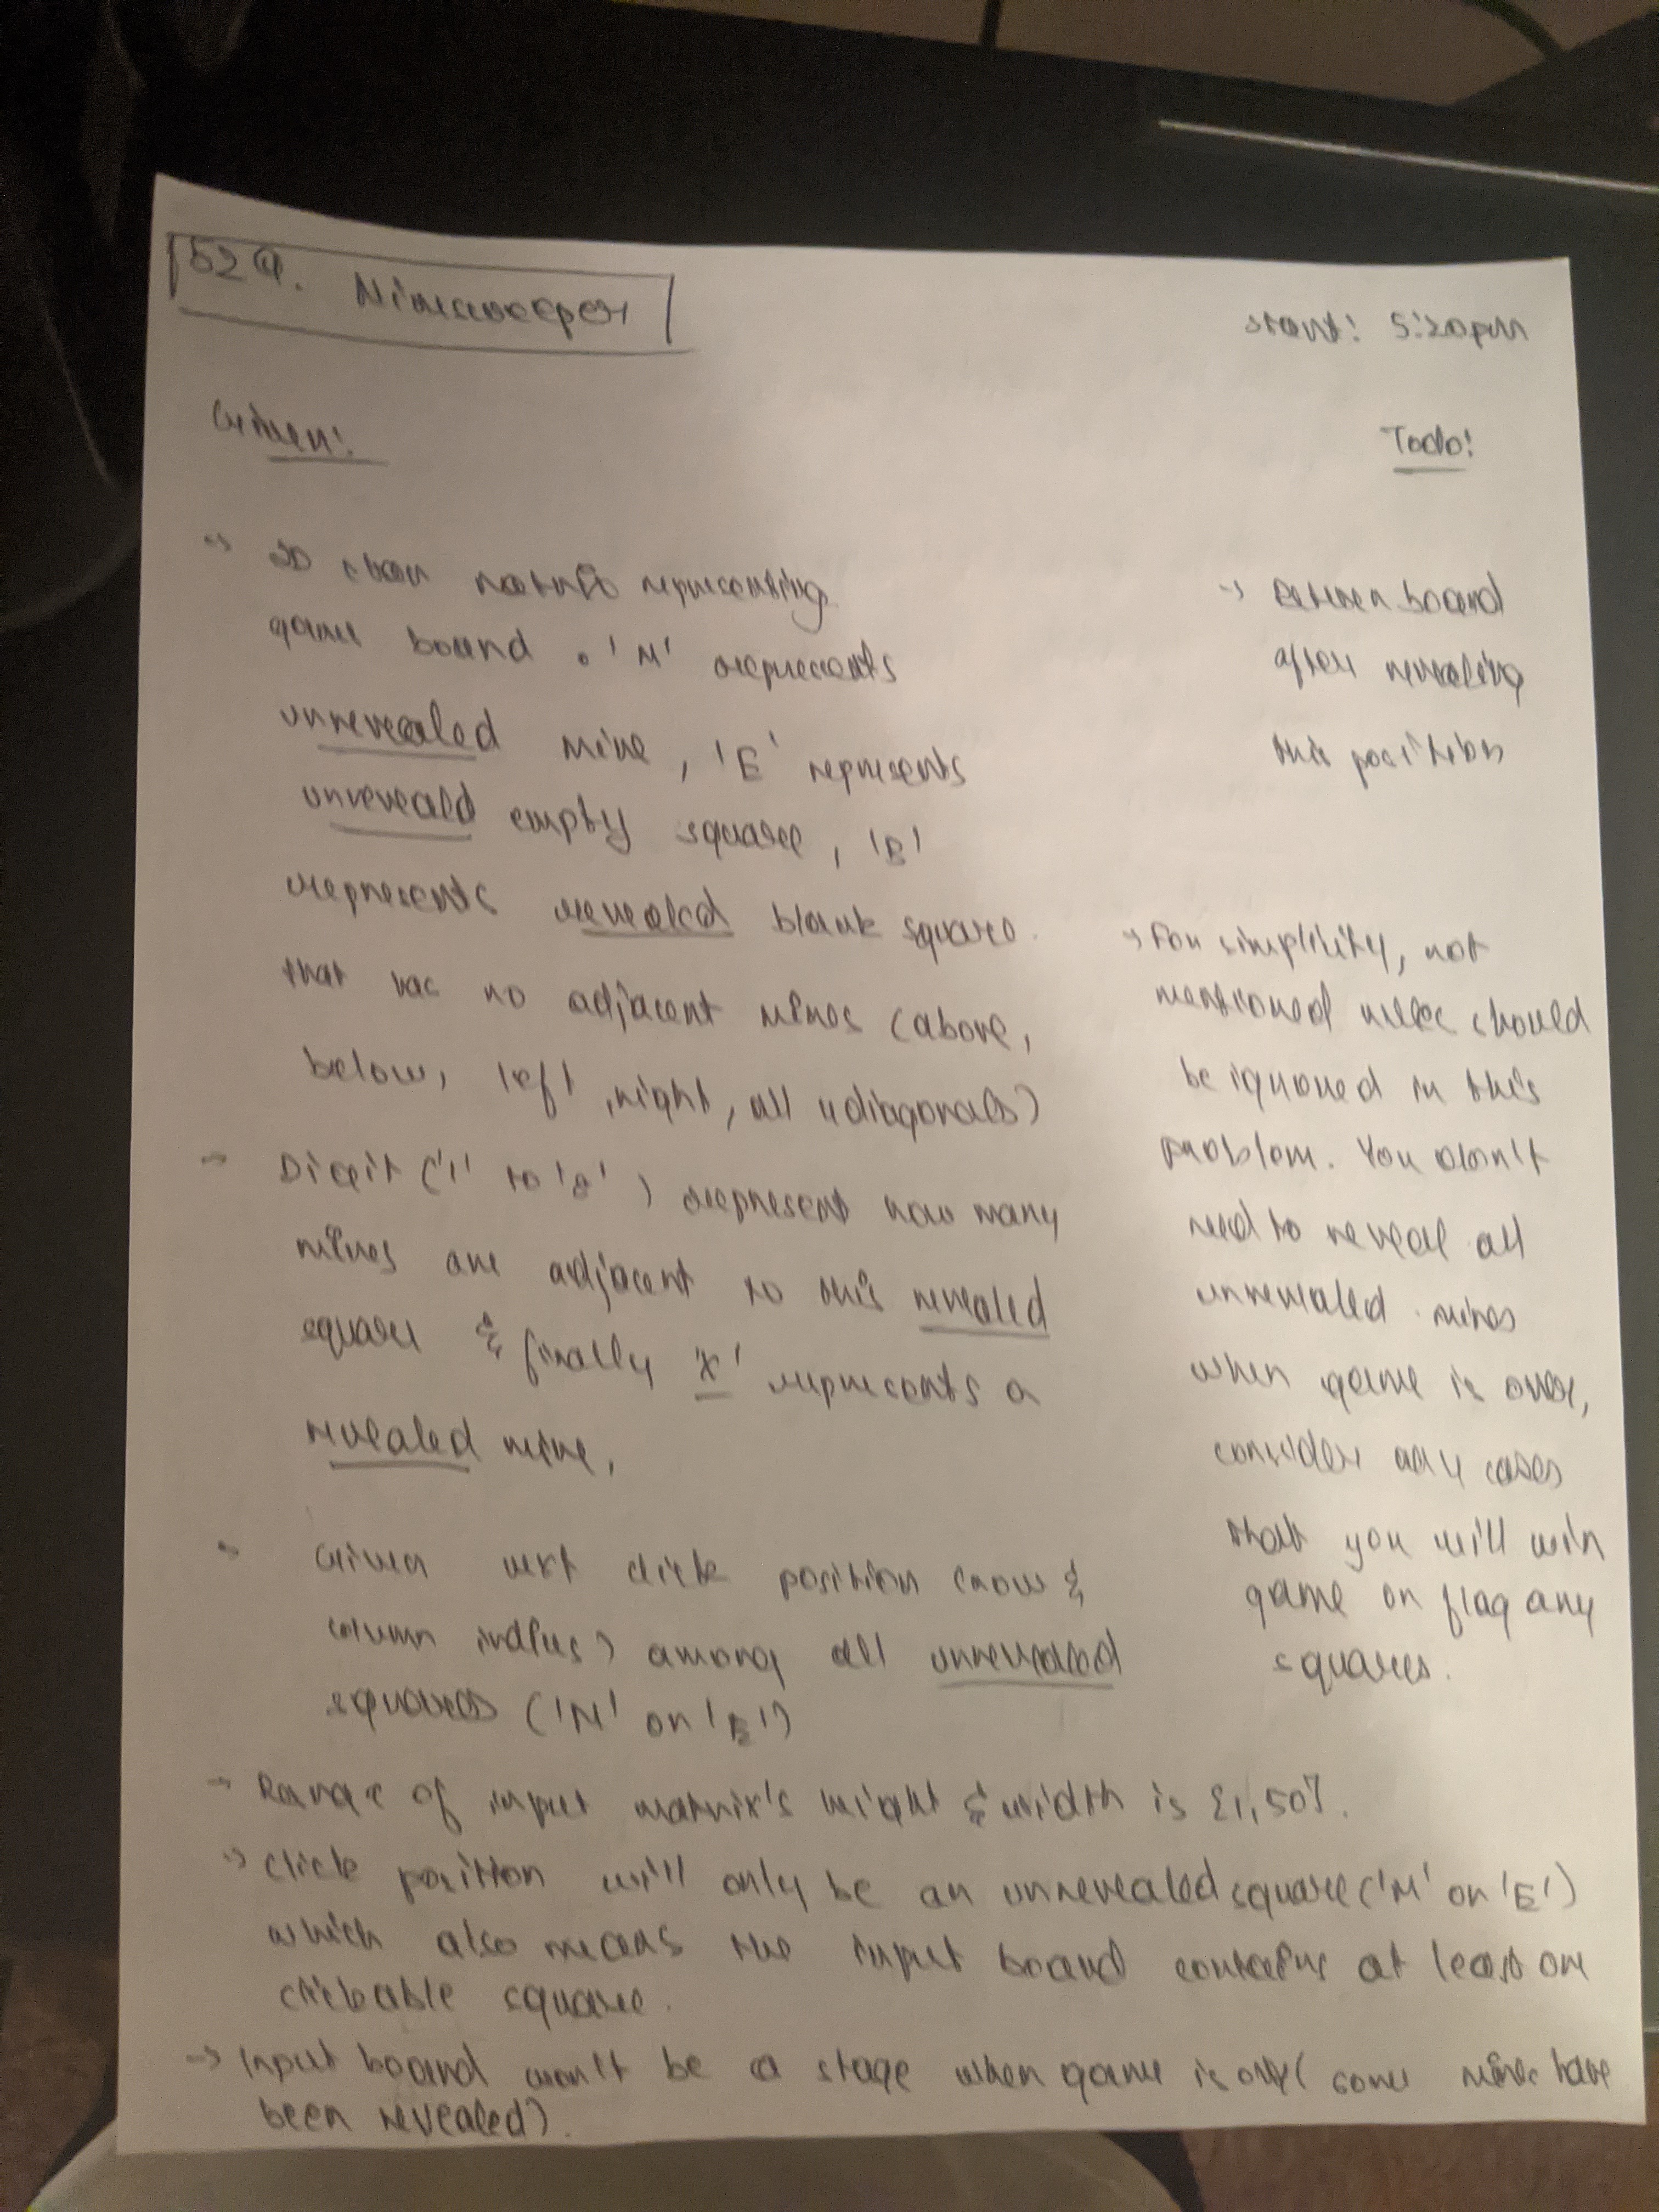 529. Minesweeper
start: 5:20pm
Given:
→ 2D char matrix representing
game board. 'M' represents
unrevealed mine, 'E' represents
unreveald empty square, 'B'
represents revealed blank square
that has no adjacent mines (above,
below, left, right, all 4 diagonals)
→ Digit ('1' to '8') represent how many
mines are adjacent to this revealed
square & finally 'X' represents a
revealed mine,
→ Given next click position (row &
column indices) among all unrevealed
squares ('M' or 'E')
Todo:
→ Return board
after revealing
this position
→ For simplicity, not
mentioned rules should
be ignored in this
problem. You don't
need to reveal all
unrevealed mines
when game is over,
consider any cases
that you will win
game or flag any
squares.
→ Range of input matrix's height & width is [1,50].
→ Click position will only be an unrevealed square ('M' or 'E')
which also means the input board contains at least one
clickable square.
→ Input board won't be a stage when game is over (some mines have
been revealed).